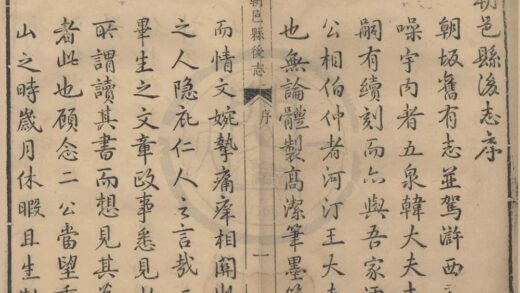 朝邑縣後志序
朝坂舊有志並駕滸西
噪宇內者五泉韓大夫
嗣有續刻而亦與吾家
公相伯仲者河汀王大
也無論體製高潔筆墨
朝邑縣後志
序
一
而情文婉摯痛癢相關
之人隱庇仁人之言哉
畢生之文章政事悉見
所謂讀其書而想見其
者此也顧念二公當望重
山之時歲月休暇且生